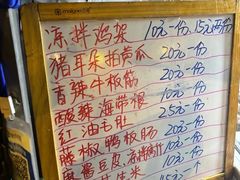 凉拌鸡架 10元一份,15元两份
猪耳朵拍黄瓜 20元一份
青辣牛板筋 20元一份
酸辣海带根 10元一份
红油毛肚 25元一份
藤椒鸭板肠 20元一份
10元一份
15元一个